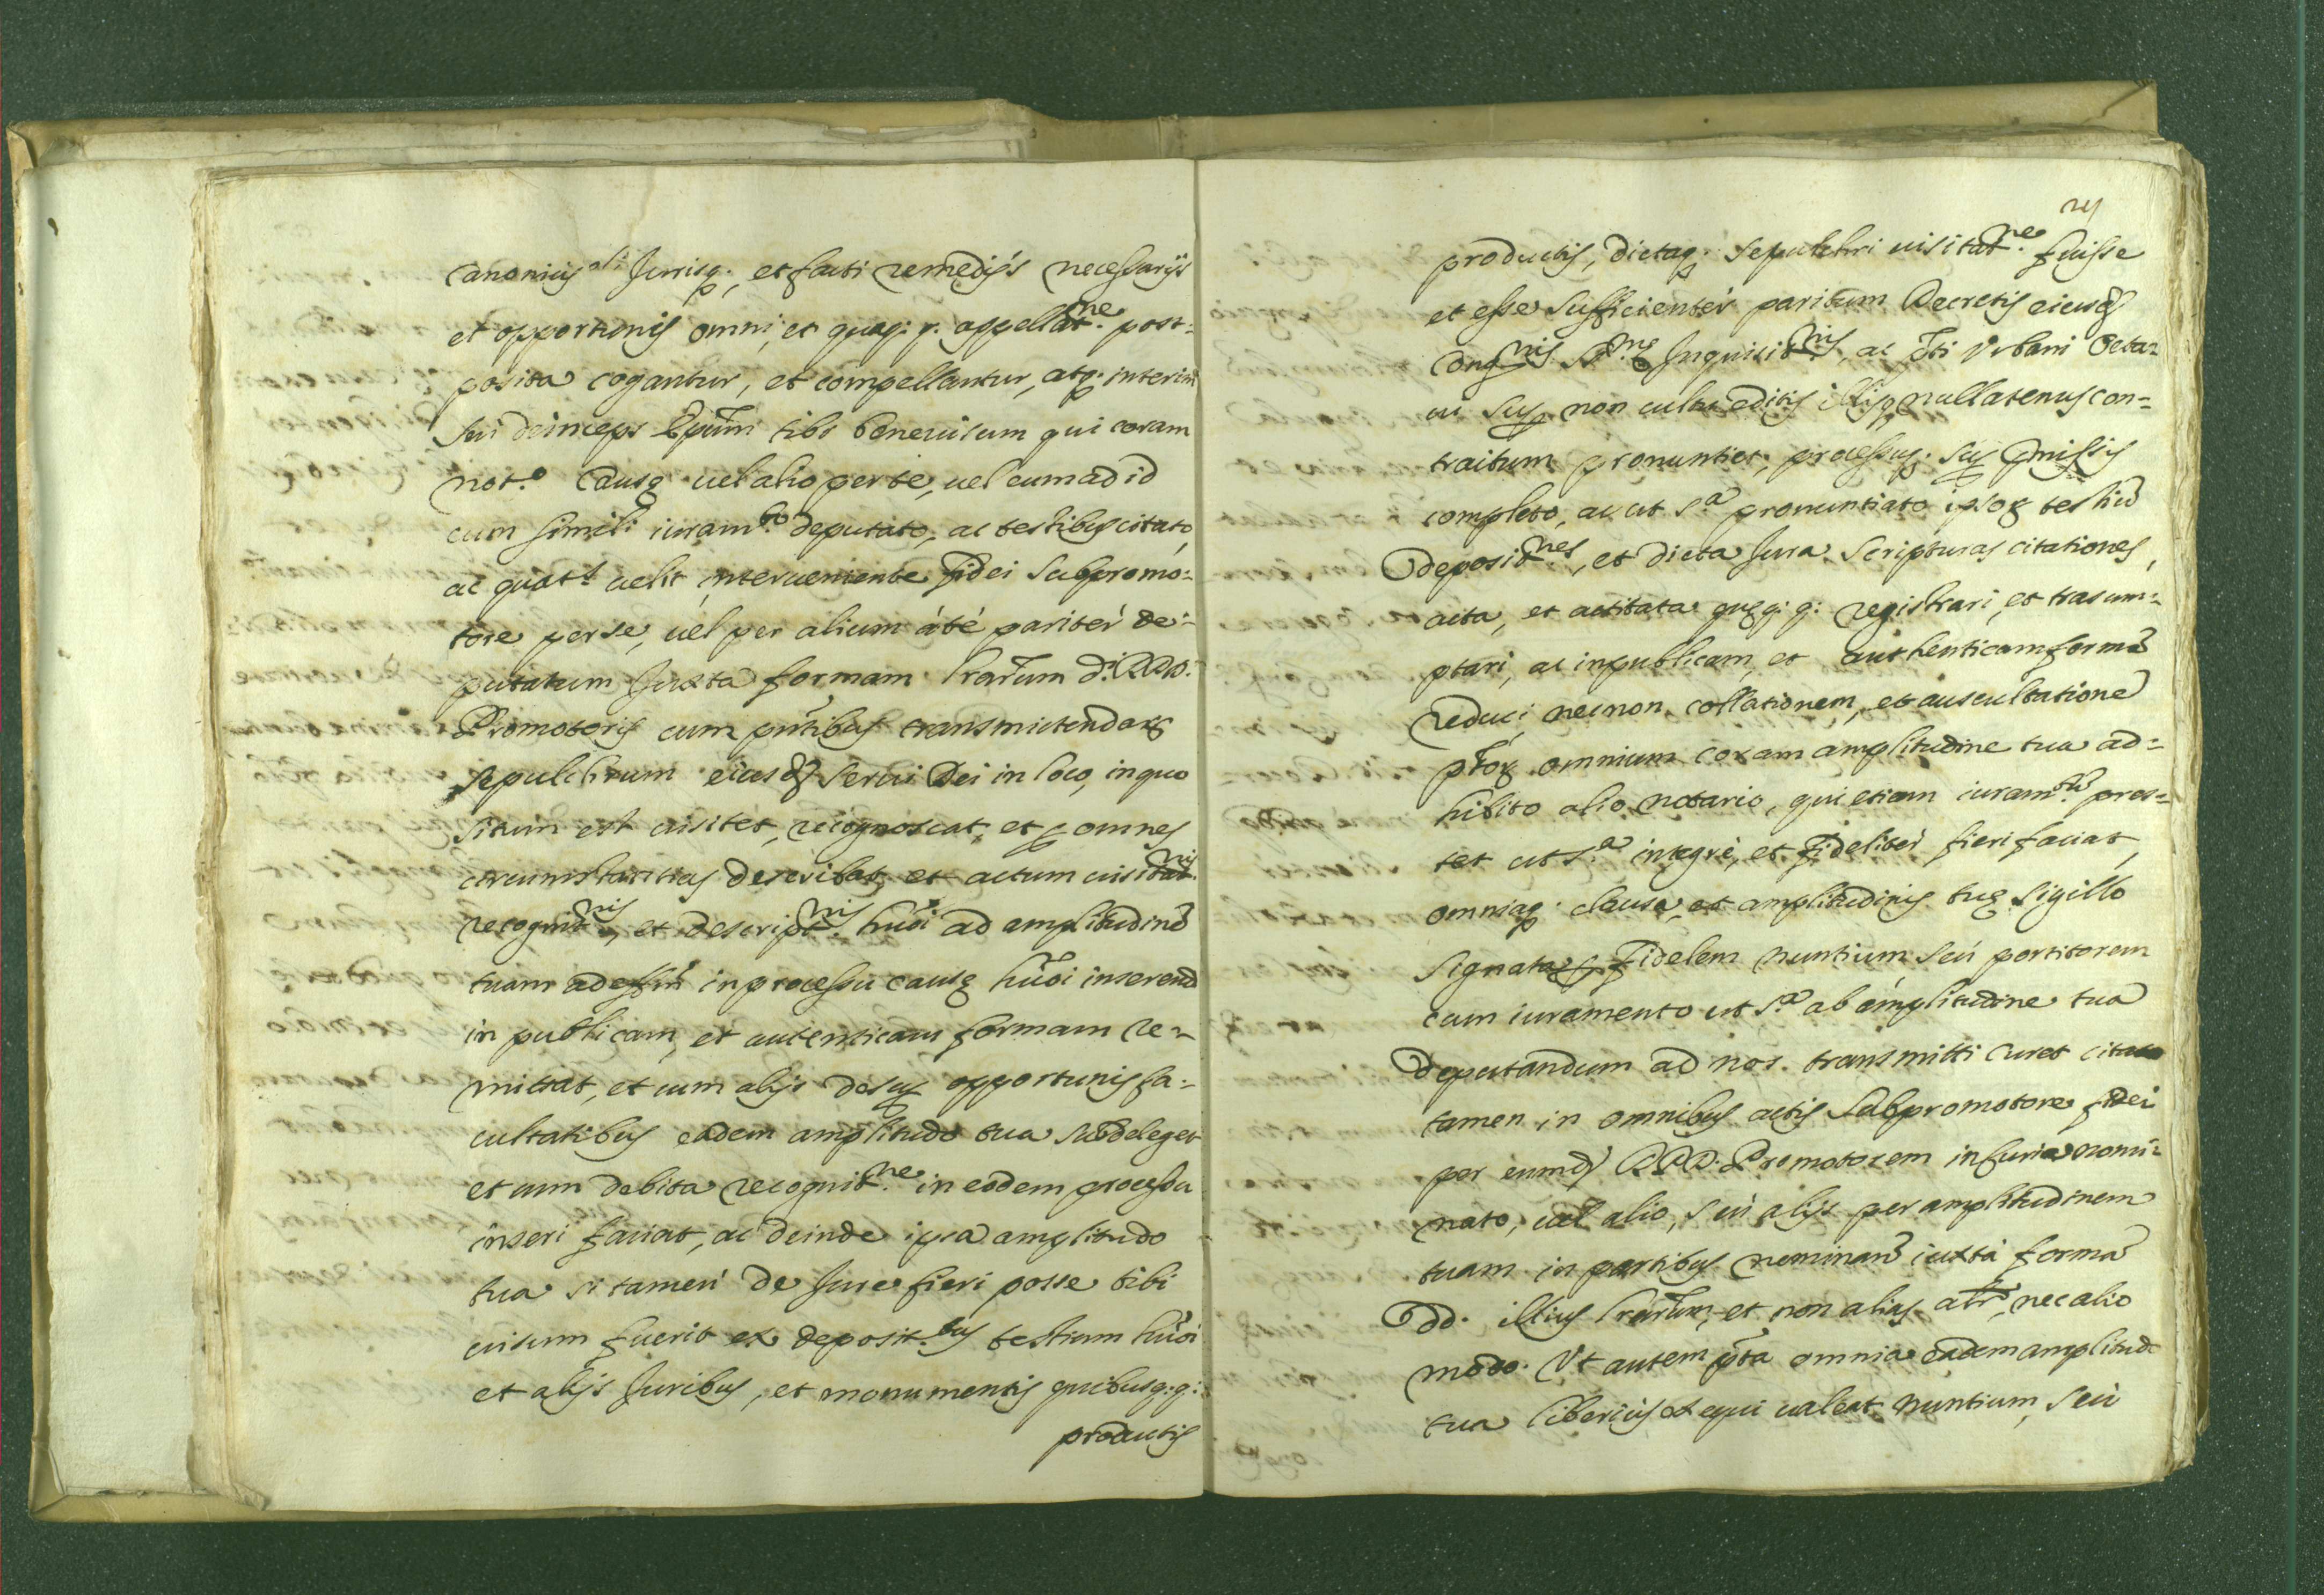 canonicis alijs Jurisq; et facti remedijs necessarijs
et opportunis omni, et quacq: q. appellat.ne post=
posita cogantur, et compellantur, atq; interim
seu deinceps Epũm tibi beneuisum qui coram
not.o Causę uel alio per te, uel eum ad id
cum simili iuram.to deputato, ac testibus citato,
ac quat.s uelit interueniente fidei subpromo=
tore per se, uel per alium á té paritér de=
putatum Juxta formam lrarum d.i RPD.
Promotoris cum pñtibus transmictendarũ
sepulchrum eiusd. serui Dei in loco, in quo
situm est uisitet, recognoscat, et omnes
circumstantias describat, et actum uisitat.nis
recognit.nis, et descript.nis hũoi ad amplitudinẽ
tuam ad effm̃ in processu causę hũoi inserend
in publicam, et autenticam formam re=
mittat, et cum alijs desup. opportunis fa=
cultatibus eadem amplitudo tua subdeleget
et cum debita recognit.ne in eodem processu
inseri faciat, ac deinde ipsa amplitudo
tua si tamen de Jure fieri posse tibi
uisum fuerit ex deposit.bus testium hũoi
et alijs Juribus, et monumentis quibusq: q:
productis
productis, dictaq; sepulchri uisitat.ne fuisse
et esse sufficientér paritum Decretis eiusd.
Cong.nis S.mę Inquisit.nis, ac d̃ti Vrbani Octa=
ui sup. non cultu editis illisq; nullatenus con=
traitum pronuntiet, processuq; sup. p̃missis
completo, ac ut s.a pronuntiato ipsorũ testiũ
deposit.nes, et dicta Jura, scripturas citationes,
acta, et actitata quęq: q: registrari, et trasum=
ptari, ac in publicam, et authenticam formã
reduci, necnon collationem, et auscultationẽ
p̃torũ omnium coram amplitudine tua ad=
hibito alio notario, qui etiam iuram.tũ pres=
tet ut s.a integrè, et fidelitér fieri faciat,
omniaq; clausa, et amplitudinis tuę sigillo
signata p. fidelem nuntium, seù portitorem
cum iuramento ut s.a ab amplitudine tua
deputandum ad nos transmitti curet citato
tamen in omnibus actis subpromotore fidei
per eumd. RPD. Promotorem in Curia nomi=
nato, uel alio, seù alijs per amplitudinem
tuam in partibus nominanď iuxtà formã
dd. illius lrarũm, et non alias alr̃, nec alio
modo. Vt autem p̃ta omnia eadem amplitudo
tua liberius exequi ualeat nuntium, seù